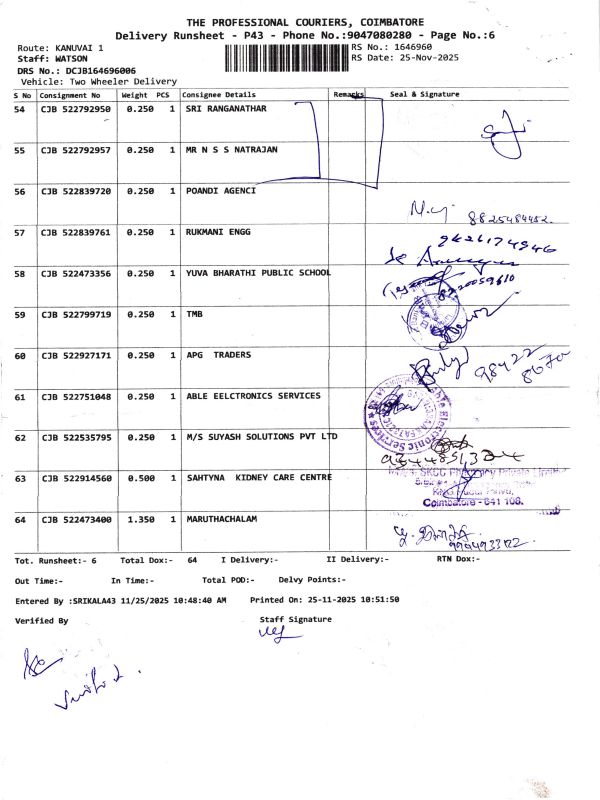 THE PROFESSIONAL COURIERS, COIMBATORE
Delivery Runsheet - P43 - Phone No.:9047080280 - Page No.:6
Route: KANUVAI 1 RS No.: 1646960
Staff: WATSON RS Date: 25-Nov-2025
DRS No.: DCJB164696006
Vehicle: Two Wheeler Delivery
S No Consignment No Weight PCS Consignee Details Remarks Seal & Signature
54 CJB 522792950 0.250 1 SRI RANGANATHAR
55 CJB 522792957 0.250 1 MR N S S NATRAJAN
56 CJB 522839720 0.250 1 POANDI AGENCI
57 CJB 522839761 0.250 1 RUKMANI ENGG
58 CJB 522473356 0.250 1 YUVA BHARATHI PUBLIC SCHOOL
59 CJB 522799719 0.250 1 TMB
60 CJB 522927171 0.250 1 APG TRADERS
61 CJB 522751048 0.250 1 ABLE EELCTRONICS SERVICES
62 CJB 522535795 0.250 1 M/S SUYASH SOLUTIONS PVT LTD
63 CJB 522914560 0.500 1 SAHTYNA KIDNEY CARE CENTRE
Coimbatore - 641 108.
64 CJB 522473400 1.350 1 MARUTHACHALAM
Tot. Runsheet:- 6 Total Dox:- 64 I Delivery:- II Delivery:- RTN Dox:-
Out Time:- In Time:- Total POD:- Delvy Points:-
Entered By :SRIKALA43 11/25/2025 10:48:40 AM Printed On: 25-11-2025 10:51:50
Verified By Staff Signature